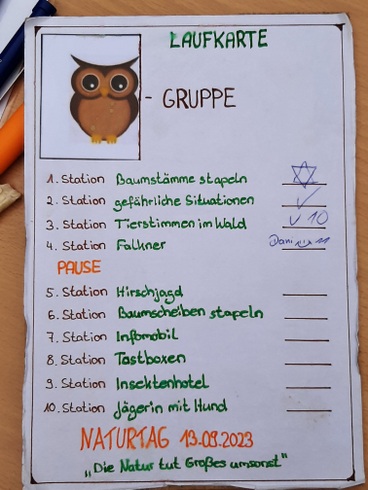 LAUFKARTE
- GRUPPE
1. Station Baumstämme stapeln
2. Station gefährliche Situationen
3. Station Tierstimmen im Wald 10
4. Station Falkner
PAUSE
5. Station Hirschjagd
6. Station Baumscheiben stapeln
7. Station Infomobil
8. Station Tastboxen
9. Station Insektenhotel
10. Station Jägerin mit Hund
NATURTAG 13.09.2023
„Die Natur tut Großes umsonst"